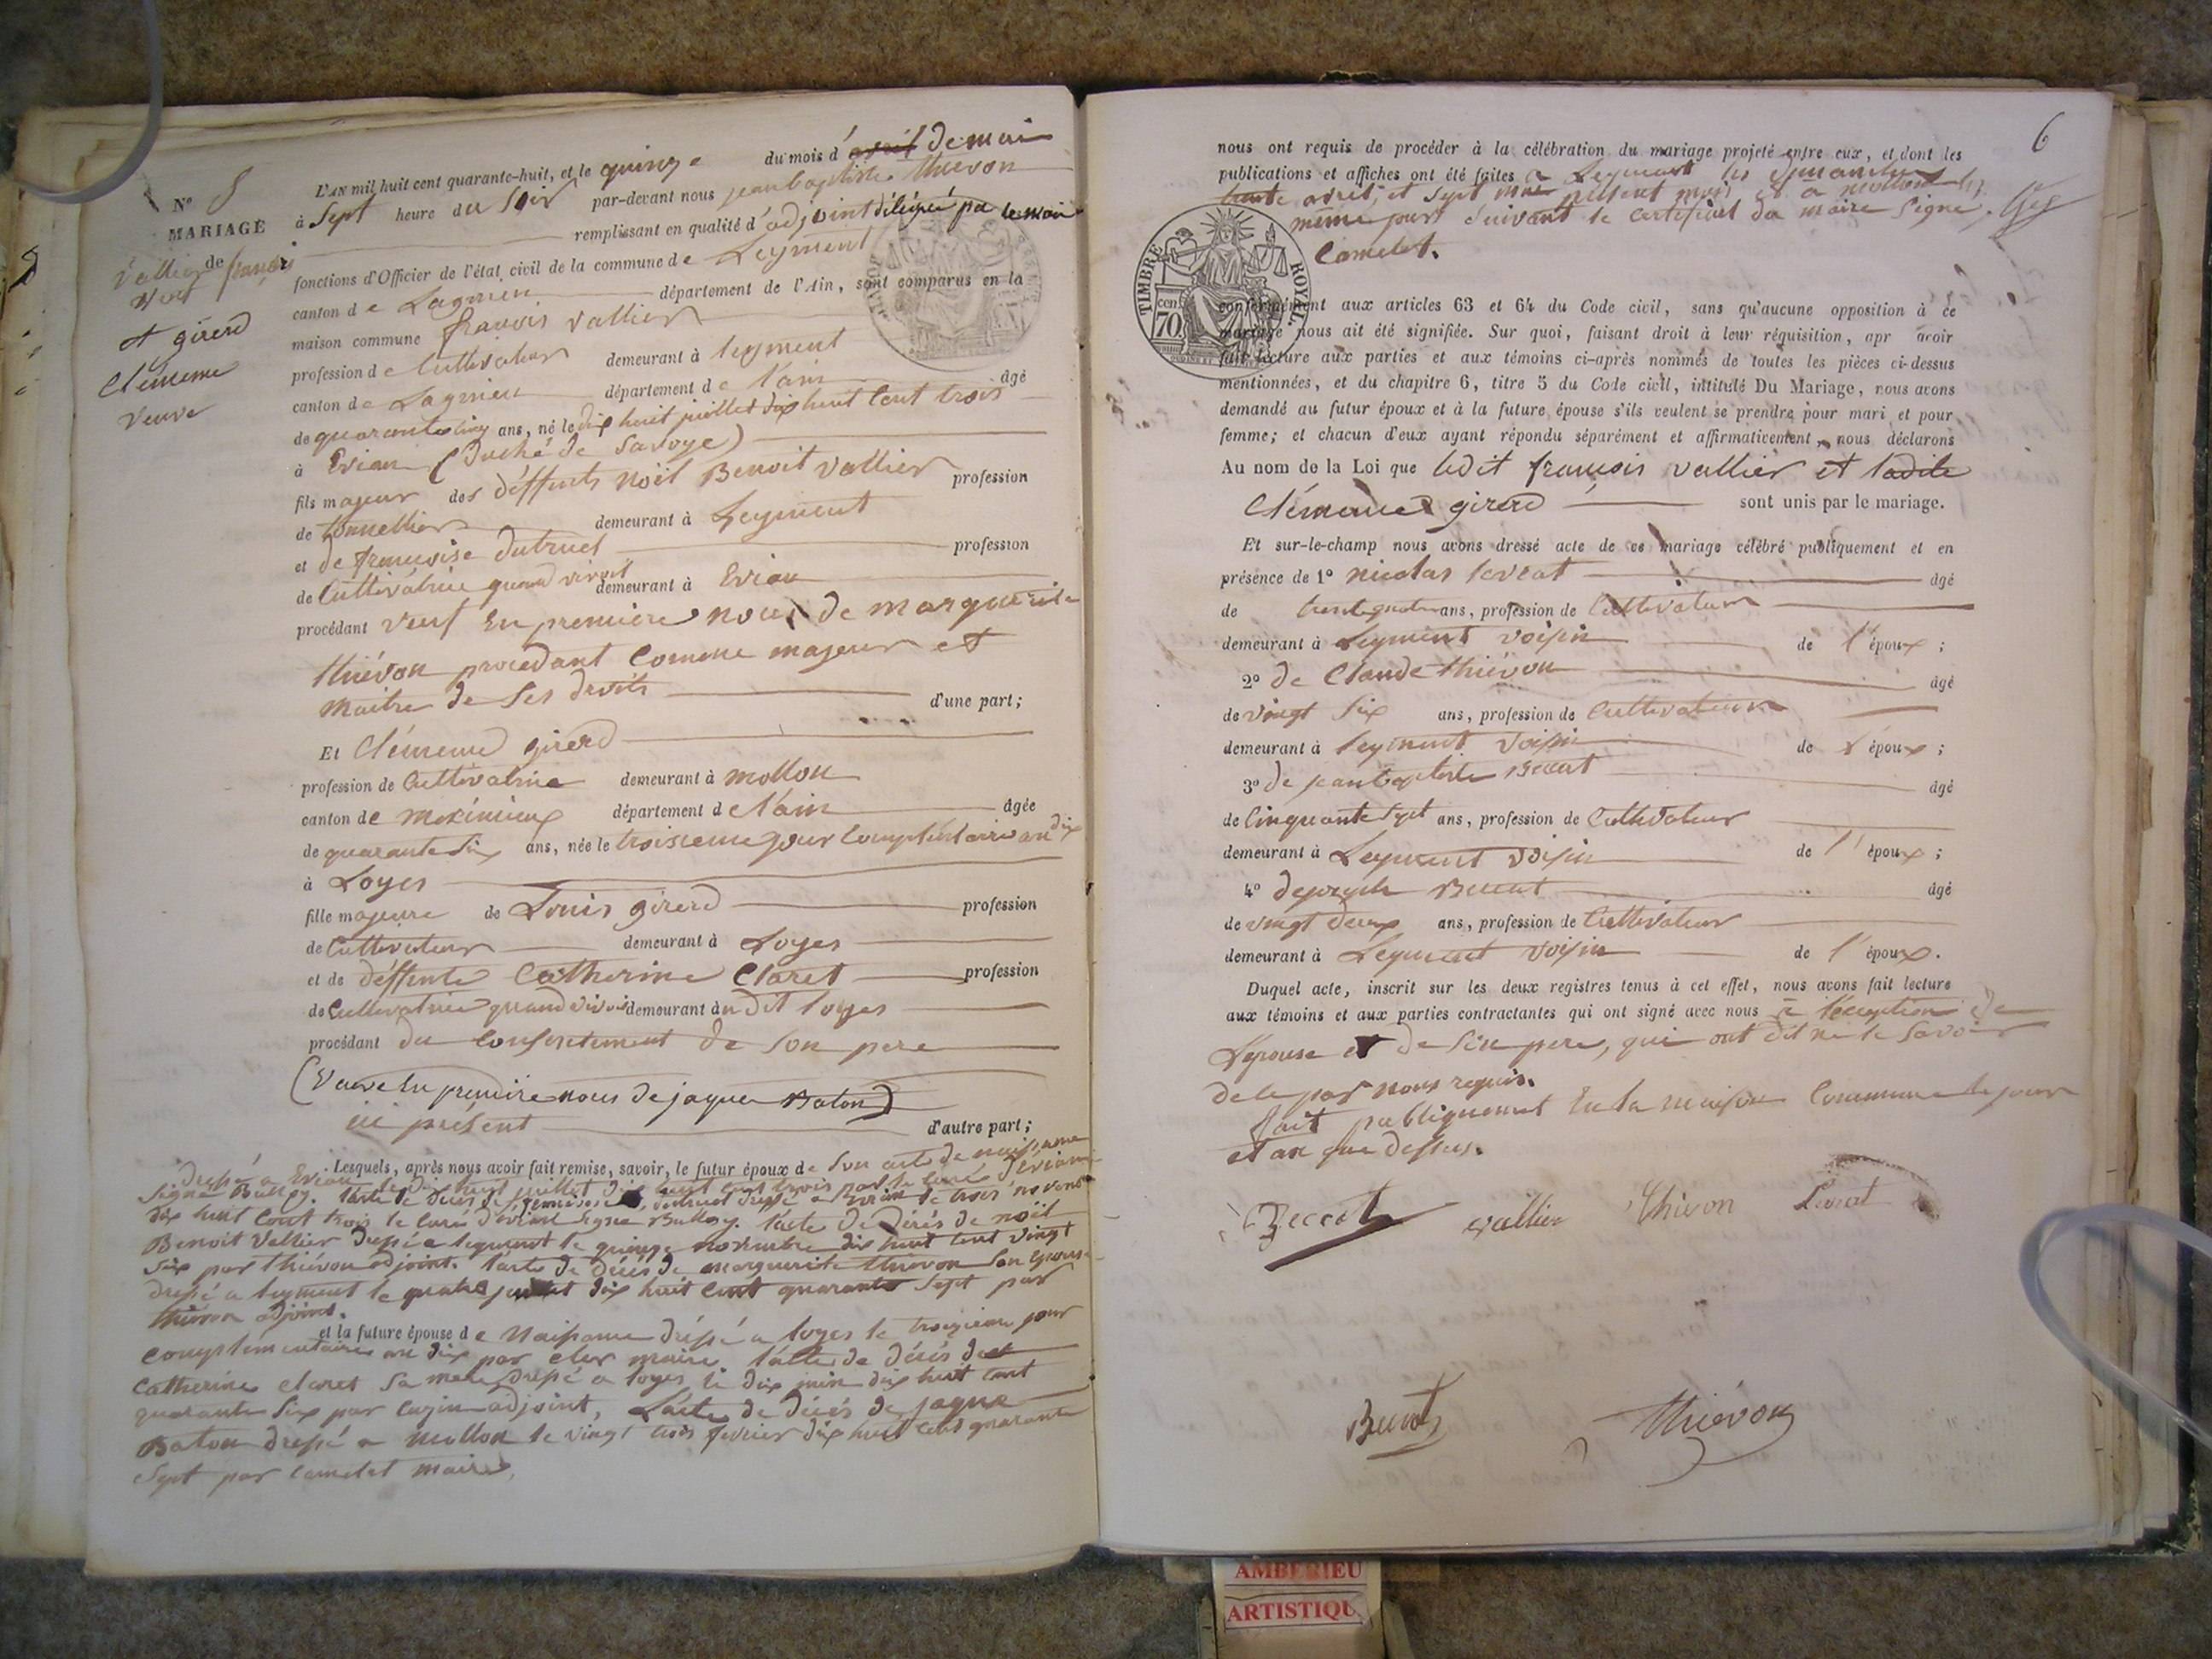 N° 8
MARIAGE
de
Vallier françois
veuf
et girerd
Clémence
veuve
L'AN mil huit cent quarante-huit, et le quinze du mois d'avril de mai
à Sept heure du Soir par-devant nous jean baptiste thiévon
remplissant en qualité d'adjoint délégué par le maire
fonctions d'Officier de l'état civil de la commune de Leyment
canton de Lagnieu département de l'Ain, sont comparus en la
maison commune françois vallier
profession de Cultivateur demeurant à leyment
canton de Lagnieu département de l'ain âgé
de quarante cinq ans, né le dix huit juillet dix huit Cent trois
à Evian (Duché de Savoye)
fils majeur des déffunts noël Benoit vallier profession
de tonnellier demeurant à Leyment
et de françoise dutruel profession
de Cultivatrice quand vivait demeurant à Evian
procédant veuf En première noces de marguerite
thiévon procédant Comme majeur et
maitre de Ses droits d'une part;
Et Clémence girerd
profession de Cultivatrice demeurant à mollon
canton de meximieux département de l'ain âgée
de quarante Six ans, née le troisieme jour Complémentaire an dix
à Loyes
fille majeure de Louis girerd profession
de Cultivateur demeurant à Loyes
et de déffunte Catherine Claret profession
de Cultivatrice quand vivoit demeurant au dit loyes
procédant du Consentement de Son pere
(Veuve En premiere noces de jaque Baton)
ici présent d'autre part;
Lesquels, après nous avoir fait remise, savoir, le futur époux de Son acte de naissance
dressé a Evian le dix huit juillet dix huit cent trois par le curé d'évian
signé Buttay. l'acte de décès de françoise dutruel dressé a Evian le trois novembre
dix huit Cent trois le Curé d'évian signé Buttay. l'acte de décés de noël
Benoit Vallier dressé a leyment le quinze novembre dix huit Cent vingt
Six par thiévon adjoint. l'acte de décés de marguerite thiévon Son épouse
dressé a leyment le quatre dix huit Cent quarante Sept par
thiévon adjoint.
et la future épouse de Naissance dréssé a loyes le troizieme jour
Complémentaire an dix par maire l'acte de décés de
Catherine claret Sa mere dressé a loyes le dix juin dix huit Cent
quarante Six par adjoint, L'acte de décés de jaque
Baton dressé a Mollon le vingt trois fevrier dix huit Cent quarante
Sept par Camelet maire
6
nous ont requis de procéder à la célébration du mariage projeté entre eux, et dont les
publications et affiches ont été faites a Leyment les dimanches
trente avril, et Sept présent mois et a mollon les
meme jours Suivant le Certificat du maire Signé.
Camelet.
TIMBRE ROYAL.
cen
70
conformément aux articles 63 et 64 du Code civil, sans qu'aucune opposition à ce
mariage nous ait été signifiée. Sur quoi, faisant droit à leur réquisition, apr avoir
fait lecture aux parties et aux témoins ci-après nommés de toutes les pièces ci-dessus
mentionnées, et du chapitre 6, titre 5 du Code civil, intitulé Du Mariage, nous avons
demandé au futur époux et à la future épouse s'ils veulent se prendre pour mari et pour
femme; et chacun d'eux ayant répondu séparément et affirmativement, nous déclarons
Au nom de la Loi que ledit françois vallier et ladite
Clémence girerd sont unis par le mariage.
Et sur-le-champ nous avons dressé acte de ce mariage célébré publiquement et en
présence de 1° nicolas levrat âgé
de trente quatre ans, profession de Cultivateur
demeurant à Leyment voisin de l'époux;
2° de Claude thiévon âgé
de vingt Six ans, profession de Cultivateur
demeurant à leyment voisin de l'époux;
3° de jean baptiste Beccat âgé
de Cinquante Sept ans, profession de Cultivateur
demeurant à Leyment voisin de l'époux;
4° de joseph Beccat âgé
de vingt deux ans, profession de Cultivateur
demeurant à Leyment voisin de l'époux.
Duquel acte, inscrit sur les deux registres tenus à cet effet, nous avons fait lecture
aux témoins et aux parties contractantes qui ont signé avec nous à l'éxception de
l'épouse et de Son pere, qui ont dit ne le Savoir
de le par nous requis.
fait publiquement En la maison Commune le jour
et an que dessus.
Beccat vallier Thievon Levrat
Beccat Thiévon
AMBERIEU
ARTISTIQU